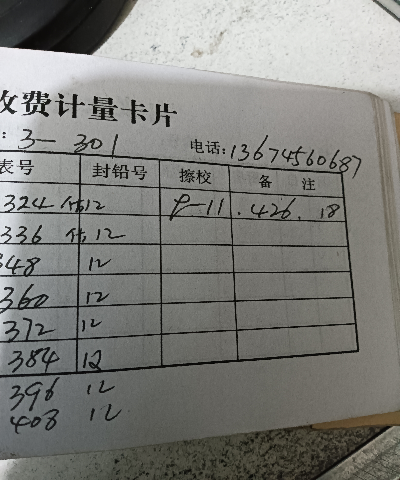 收费计量卡片
: 3-301 电话:13674560687
表号 封铅号 擦校 备 注
324 12 9-11 .426.18
336 12
348 12
360 12
372 12
384 12
396 12
408 12